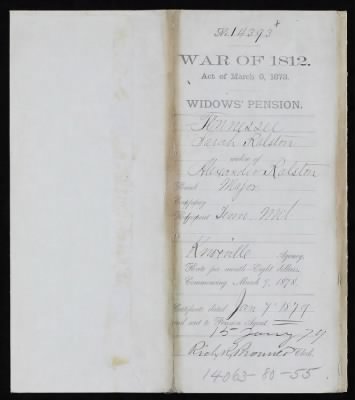 No 14393
WAR OF 1812.
Act of March 9, 1878.
WIDOWS' PENSION.
Tennessee
Sarah Ralston
widow of
Alexander Ralston
Rank Major
Company
Regiment Tenn Mil
Knoxville Agency.
Rate per month Eight dollars,
Commencing March 9, 1878.
Certificate dated Jan 7th 1879
and sent to Pension Agent,
15 Jany 79
Clerk.
14063-80-55